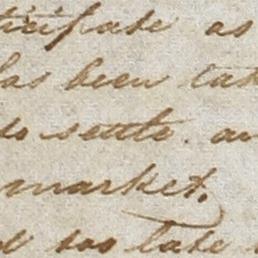 ticipate as
has been
to settle an
market.
too late